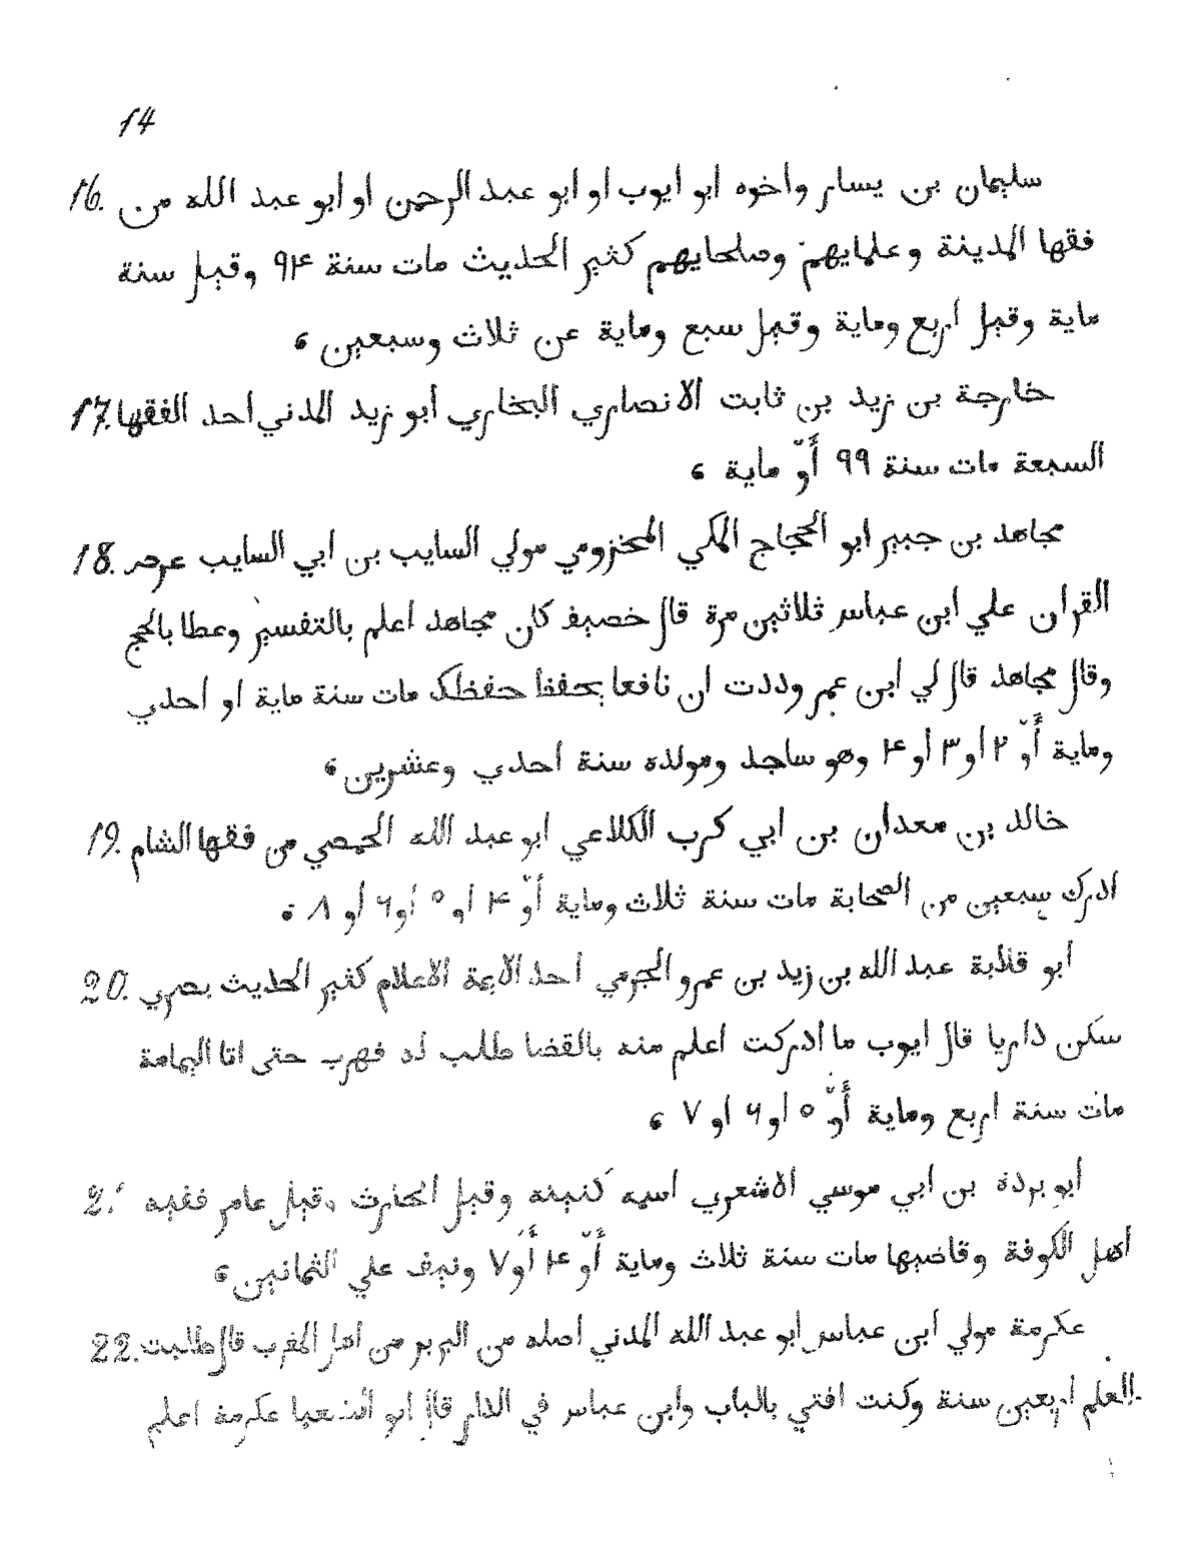 14
16. سليمان بن يسار واخوه ابو ايوب او ابو عبد الرحمن او ابو عبد الله من
فقها المدينة وعلمايهم وصلحايهم كثير الحديث مات سنة ٩٤ وقيل سنة
ماية وقيل اربع وماية وقيل سبع وماية عن ثلاث وسبعين ٤
17. خارجة بن زيد بن ثابت الانصاري البخاري أبو زيد المدني أحد الفقها
السبعة مات سنة ٩٩ أوّ ماية ٤
18. مجاهد بن جبير ابو الحجاج المكي المخزومي مولي السايب بن ابي السايب عرض
القران علي ابن عباس ثلاثين مرة قال خصيف كان مجاهد أعلم بالتفسير وعطا بالحج
وقال مجاهد قال لي ابن عمر وددت ان نافعا يحفظ حفظك مات سنة ماية او احدي
وماية أوّ ٢ أو ٣ أو ٤ وهو ساجد ومولده سنة احدي وعشرين ٤
19. خالد بن معدان بن ابي كرب الكلاعي ابو عبد الله الحمصي من فقها الشام
ادرك سبعين من الصحابة مات سنة ثلاث وماية أوّ ٤ أو ٥ أو ٦ أو ٨ ٤
20. أبو قلابة عبد الله بن زيد بن عمرو الجرمي أحد الايمة الاعلام كثير الحديث بصري
سكن داريا قال ايوب ما ادركت اعلم منه بالقضا طلب له فهرب حتى اتا اليمامة
مات سنة اربع وماية أوّ ٥ او ٦ او ٧ ٤
2. ابو بردة بن ابي موسي الاشعري اسمه كنيته وقيل الحارث وقيل عامر فقيه
اهل الكوفة وقاضيها مات سنة ثلاث وماية أوّ ٤ أو ٧ ونيف علي الثمانين ٤
22. عكرمة مولي ابن عباس ابو عبد الله المدني اصله من البربر من اهل المغرب قال طلبت
العلم اربعين سنة وكنت افتي بالباب وابن عباس في الدار قال ابو الشعيا عكرمة اعلم